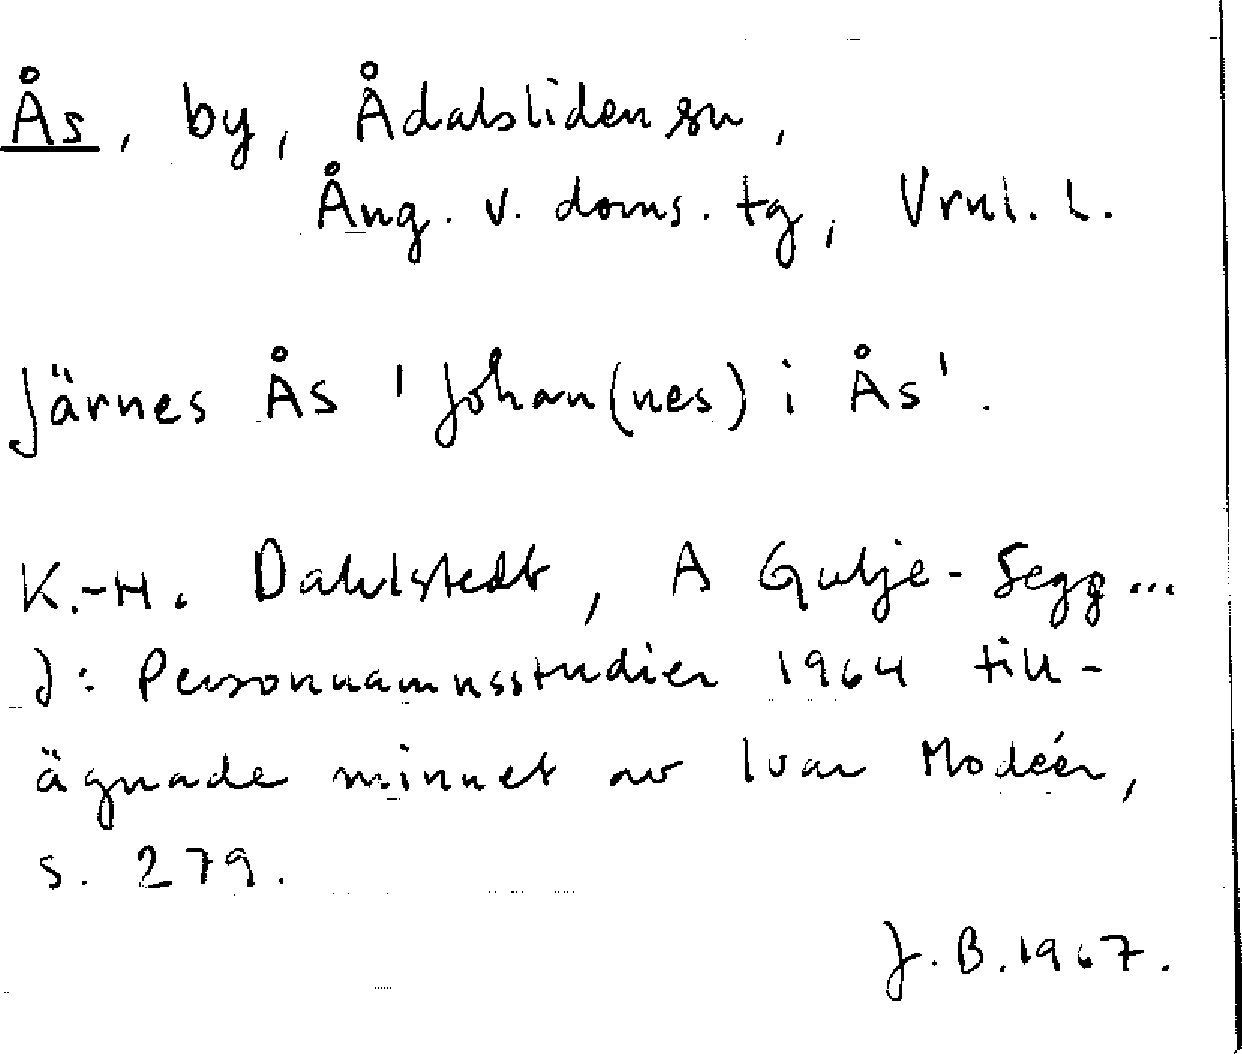 Ås, by, Ådalsliden sn,
Ång. v. doms. tg, Vrnl. l.
Järnes Ås 'Johan(nes) i Ås'.
K.-H. Dahlstedt, A Gulje-Segg...
I: Personnamnsstudier 1964 till-
ägnade minnet av Ivar Modéer,
s. 279.
J. B. 1967.